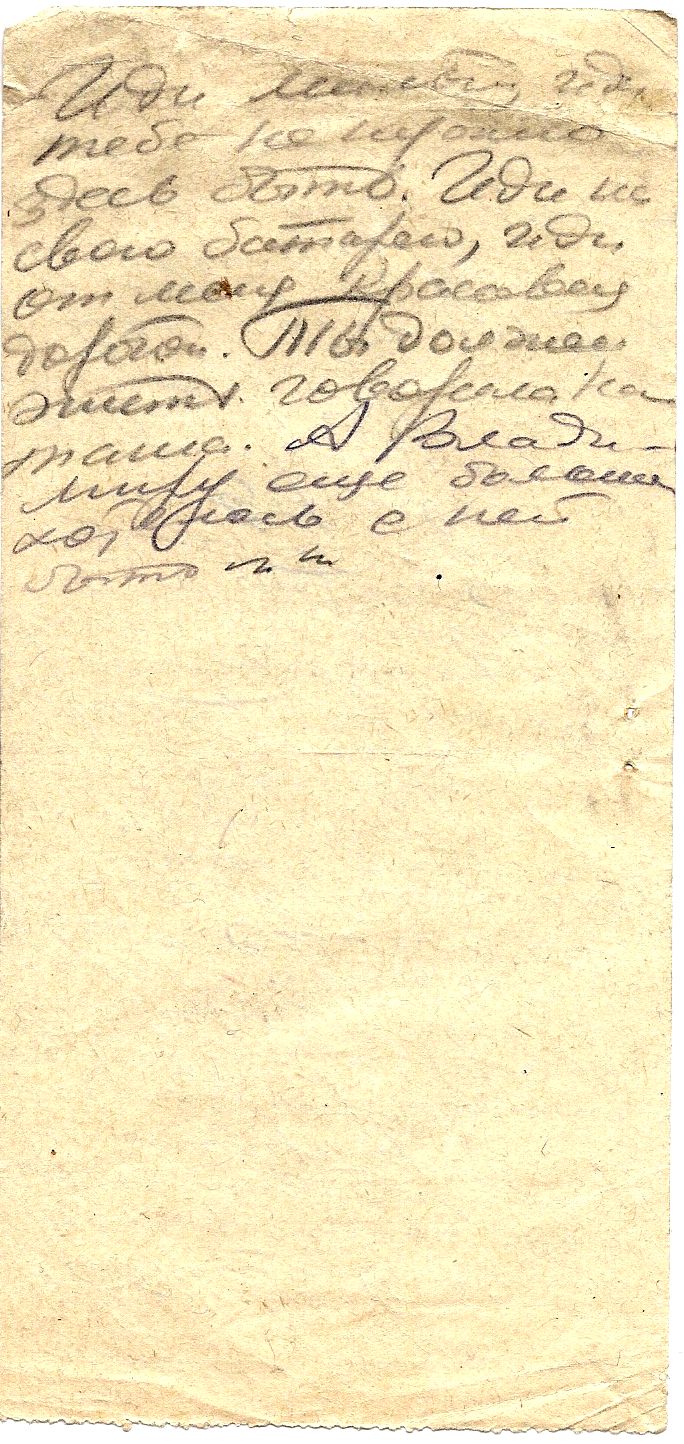 Иди милый иди
тебе не нужно
здесь быть. Иди на
свою батарею, иди
от меня Красавец
дорогой. Ты должен
жить. говорила На-
таша. А Влади-
миру еще больше
хотелось с ней
быть